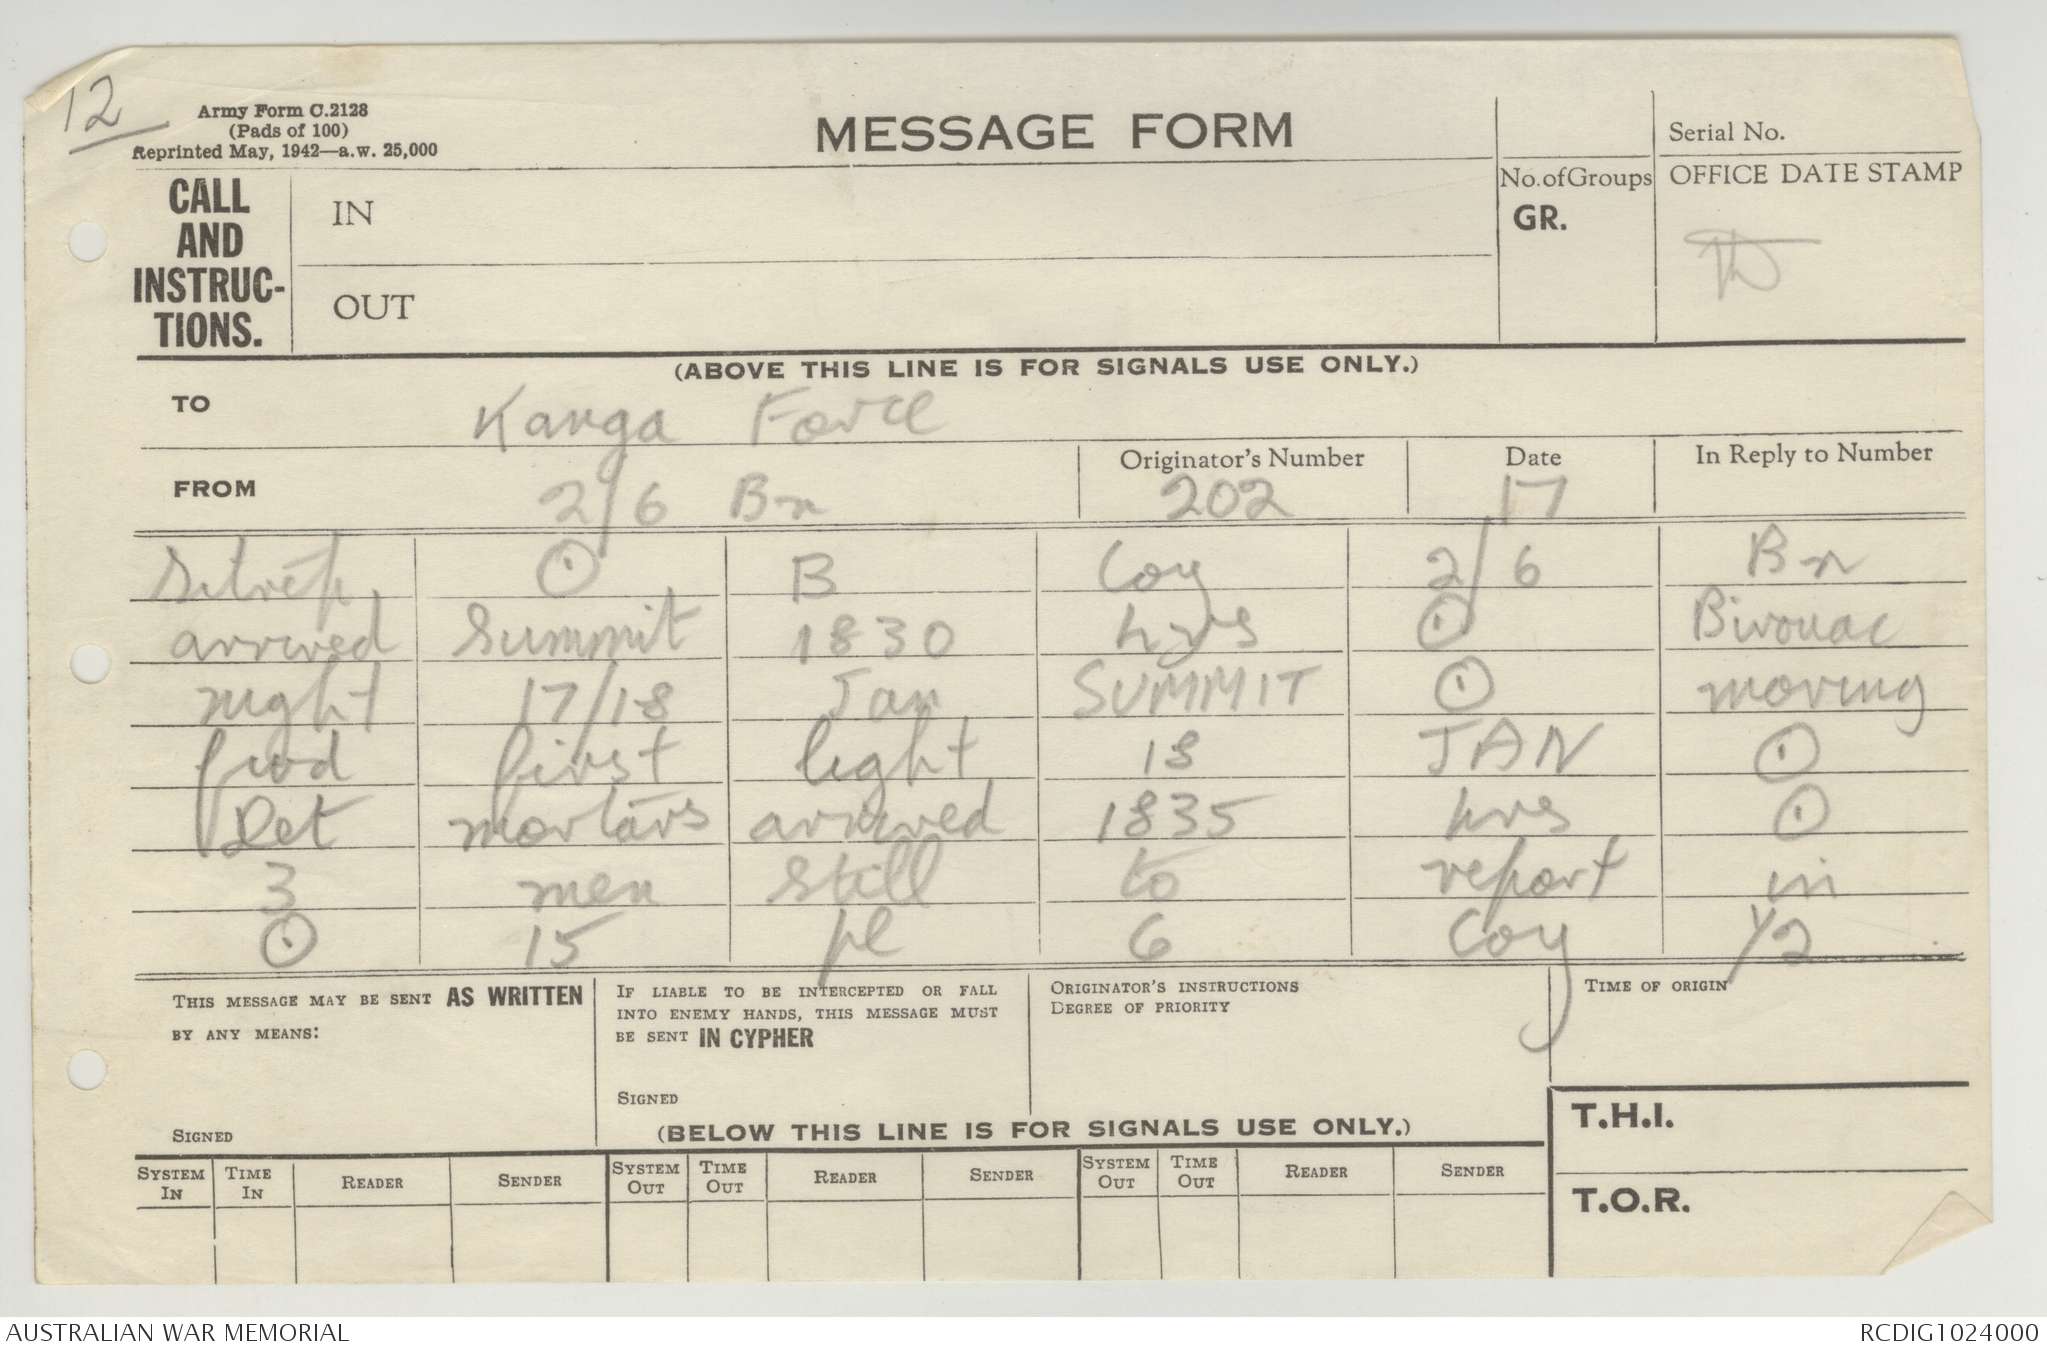 12
Army Form C.2128
(Pads of 100)
Reprinted May, 1942—a.w. 25,000
MESSAGE FORM
Serial No.
CALL
AND
INSTRUC-
TIONS.
IN
OUT
No. of Groups
GR.
OFFICE DATE STAMP
(ABOVE THIS LINE IS FOR SIGNALS USE ONLY.)
TO Kanga Force
FROM 2/6 Bn
Originator's Number 202
Date 17
In Reply to Number
Sitrep ⊙ B Coy 2/6 Bn
arrived Summit 1830 hrs ⊙ Bivouac
night 17/18 Jan SUMMIT ⊙ moving
fwd first light 18 JAN ⊙
Det mortars arrived 1835 hrs ⊙
3 men still to report in
⊙ 15 pl 6 Coy 1/2
THIS MESSAGE MAY BE SENT AS WRITTEN
BY ANY MEANS:
SIGNED
IF LIABLE TO BE INTERCEPTED OR FALL
INTO ENEMY HANDS, THIS MESSAGE MUST
BE SENT IN CYPHER
SIGNED
ORIGINATOR'S INSTRUCTIONS
DEGREE OF PRIORITY
TIME OF ORIGIN
(BELOW THIS LINE IS FOR SIGNALS USE ONLY.)
T.H.I.
T.O.R.
SYSTEM IN TIME IN READER SENDER SYSTEM OUT TIME OUT READER SENDER SYSTEM OUT TIME OUT READER SENDER
AUSTRALIAN WAR MEMORIAL
RCDIG1024000